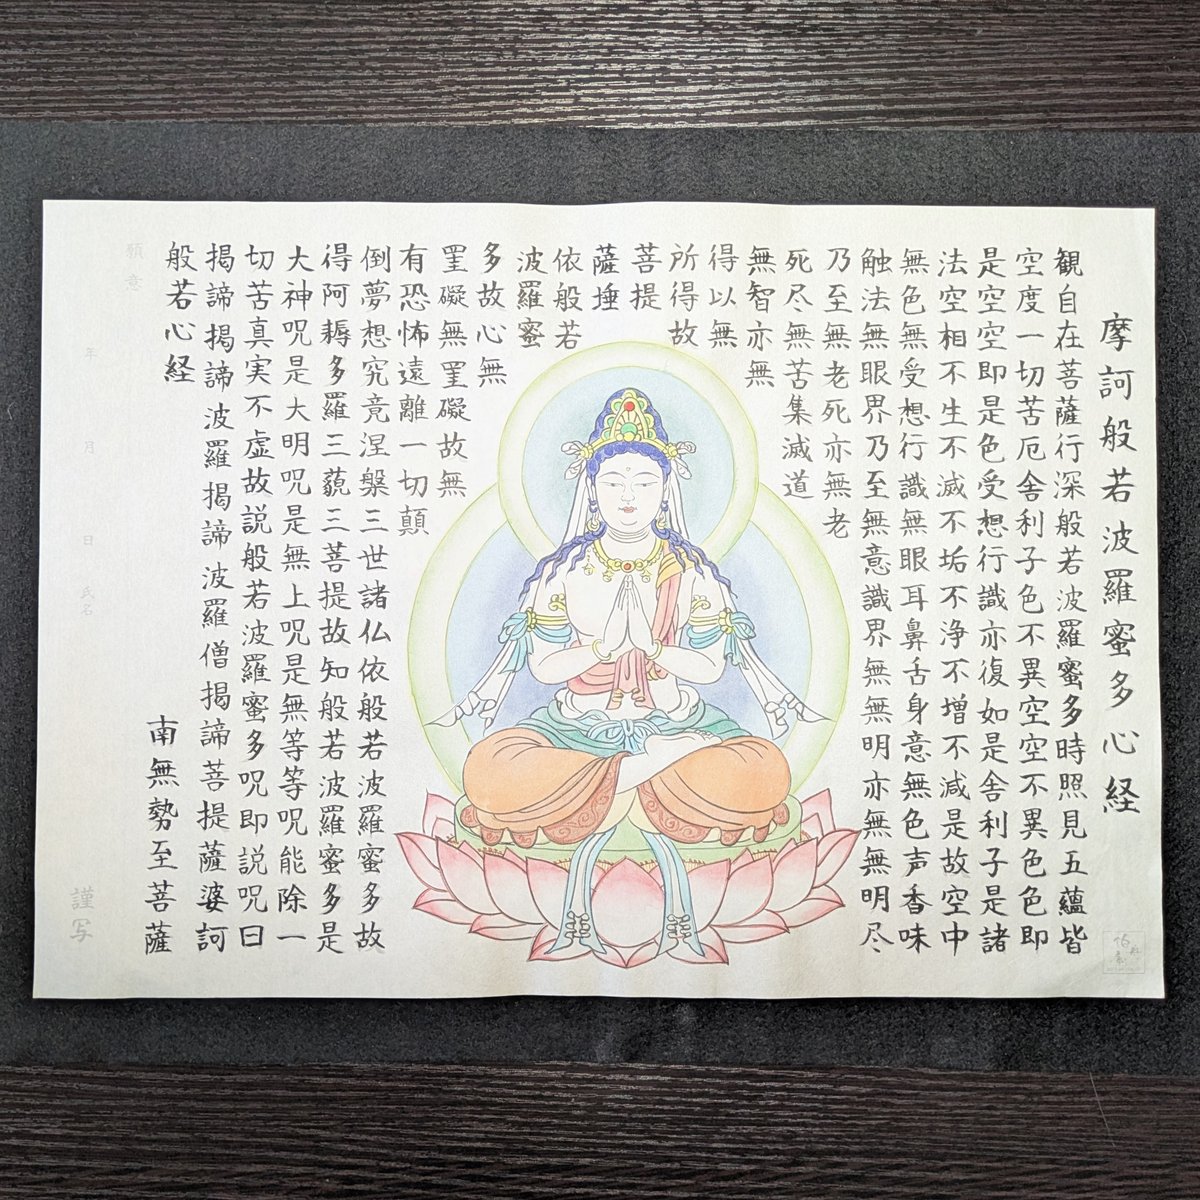 摩訶般若波羅蜜多心経
観自在菩薩行深般若波羅蜜多時照見五蘊皆
空度一切苦厄舎利子色不異空空不異色色即
是空空即是色受想行識亦復如是舎利子是諸
法空相不生不滅不垢不浄不増不減是故空中
無色無受想行識無眼耳鼻舌身意無色声香味
触法無眼界乃至無意識界無無明亦無無明尽
乃至無老死亦無老
死尽無苦集滅道
無智亦無
得以無
所得故
菩提
薩埵
依般若
波羅蜜
多故心無
罣礙無罣礙故無
有恐怖遠離一切顛
倒夢想究竟涅槃三世諸仏依般若波羅蜜多故
得阿耨多羅三藐三菩提故知般若波羅蜜多是
大神呪是大明呪是無上呪是無等等呪能除一
切苦真実不虚故説般若波羅蜜多呪即説呪曰
揭諦揭諦波羅揭諦波羅僧揭諦菩提薩婆訶
般若心経
南無勢至菩薩
願意
年 月 日 氏名
謹写